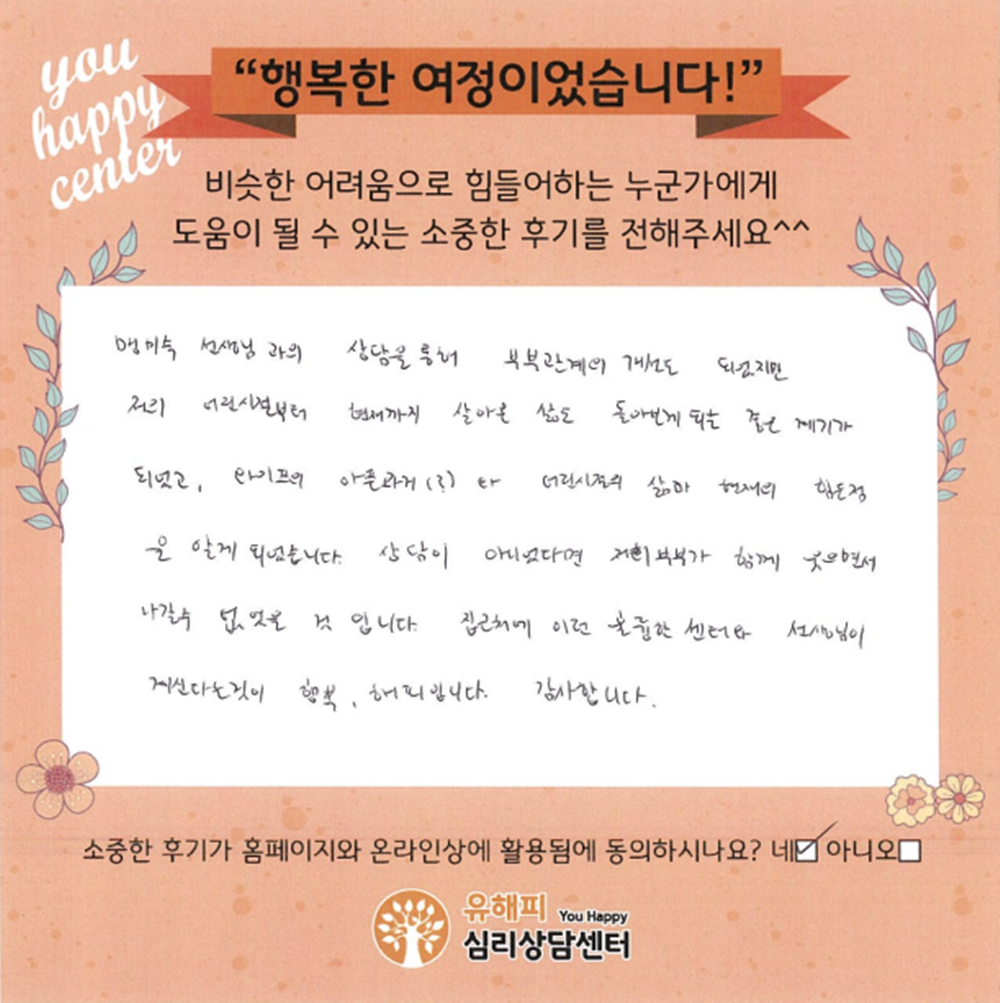 you
happy
center
“행복한 여정이었습니다!”
비슷한 어려움으로 힘들어하는 누군가에게
도움이 될 수 있는 소중한 후기를 전해주세요^^
맹미숙 선생님 과의 상담을 통해 부부관계의 개선도 되었지만
저의 어린시절부터 현재까지 살아온 삶도 돌아보게 되는 좋은 계기가
되었고, 와이프의 아픈과거(?) 와 어린시절의 삶과 현재의 힘든점
을 알게 되었습니다. 상담이 아니었다면 저희부부가 함께 웃으면서
나갈수 없었을 것 입니다. 집근처에 이런 훌륭한 센터와 선생님이
계신다는것이 행복, 해피입니다. 감사합니다.
소중한 후기가 홈페이지와 온라인상에 활용됨에 동의하시나요? 네☑ 아니오☐
유해피 You Happy
심리상담센터